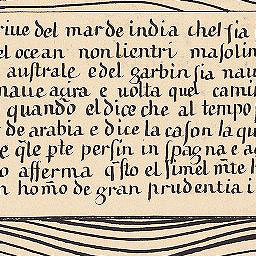 riue del mar de india che l sia
el ocean non lientri ma solin
australe e del garbin sia nau
naue açira e uolta quel cami
quando el dice che al tempo
de arabia e dice la cason la qu
e q̃le p̃te persin in spagna e a
o afferma q̃sto el simel m̃te h
n hom̃o de gran prudentia i